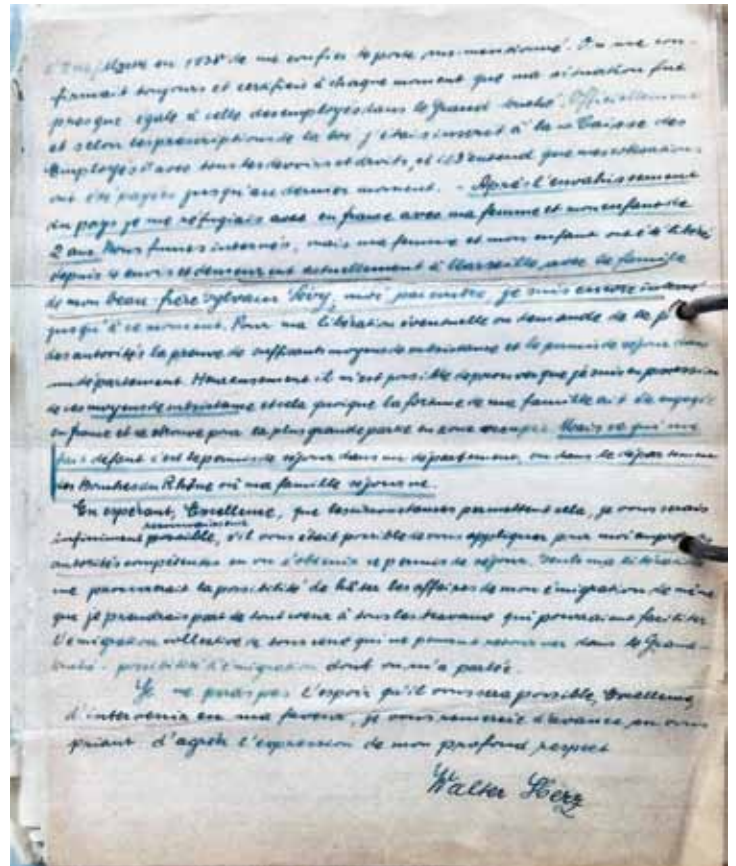 d'Esch/Alzette en 1938 de me confier le poste sus-mentionné. On me con-
firmait toujours et certifiait à chaque moment que ma situation fut
presque égale à celle des employés dans le Grand-Duché. Officiellement
et selon les préscriptions de la loi j'étais inscrit à la "Caisse des
Employés" avec tous les devoirs et droits, et il s'entend que mes cotisations
ont été payées jusqu'au dernier moment. - Après l'envahissement
du pays je me réfugiais avec en france avec ma femme et mon enfant de
2 ans. Nous fumes internés, mais ma femme et mon enfant ont été libérés
depuis et demeurent actuellement à Marseille, avec la famille
de mon beau frère Sylvain Lévy, moi, par contre, je suis encore interné
jusqu'à ce moment. Pour ma libération éventuelle on demande de la
des autorités la preuve de suffisants moyens de subsistance et le permis de séjour dans
un département. Heureusement il m'est possible de prouver que je suis en possession
de ces moyens de subsistance et cela quoique la fortune de ma famille ait été engagée
en france et se trouve pour la plus grande partie en zone occupée. Mais ce qui me
fait défaut c'est le permis de séjour dans un département, ou dans le département
des Bouches du Rhône où ma famille séjourne.
En espérant, Excellence, que les circonstances permettent cela, je vous serais
infiniment reconnaissant possible, s'il vous était possible de vous appliquer pour moi auprès des
autorités compétentes en vue d'obtenir ce permis de séjour. Seule ma libération
me procurerait la possibilité de hâter les affaires de mon émigration de même
que je prendrais part de tout coeur à tous les travaux qui pourraient faciliter
l'émigration collective de tous ceux qui ne peuvent retourner dans le Grand-
Duché - possibilité d'émigration dont on m'a parlée.
Je ne perds pas l'espoir qu'il vous sera possible, Excellence,
d'intervenir en ma faveur, je vous remercie d'avance, en vous
priant d'agréer l'expression de mon profond respect
Walter Herz